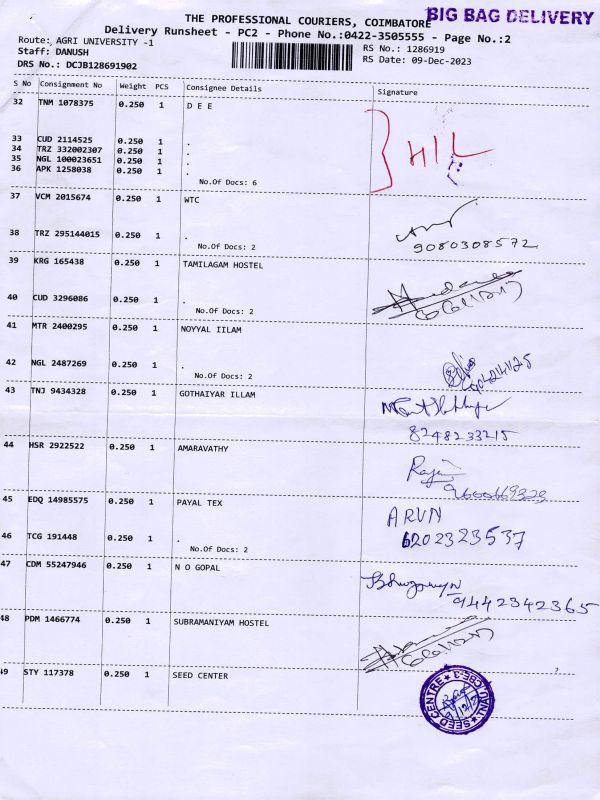 THE PROFESSIONAL COURIERS, COIMBATORE BIG BAG DELIVERY
Delivery Runsheet - PC2 - Phone No.:0422-3505555 - Page No.:2
Route: AGRI UNIVERSITY -1 RS No.: 1286919
Staff: DANUSH RS Date: 09-Dec-2023
DRS No.: DCJB128691902
S No Consignment No Weight PCS Consignee Details Signature
32 TNM 1078375 0.250 1 D E E
33 CUD 2114525 0.250 1 .
34 TRZ 332002307 0.250 1 .
35 NGL 100023651 0.250 1 .
36 APK 1258038 0.250 1 .
No.Of Docs: 6
HIL
37 VCM 2015674 0.250 1 WTC
38 TRZ 295144015 0.250 1 .
No.Of Docs: 2 9080308572
39 KRG 165438 0.250 1 TAMILAGAM HOSTEL
40 CUD 3296086 0.250 1 .
No.Of Docs: 2
41 MTR 2400295 0.250 1 NOYYAL IILAM
42 NGL 2487269 0.250 1 .
No.Of Docs: 2
43 TNJ 9434328 0.250 1 GOTHAIYAR ILLAM
8248233215
44 HSR 2922522 0.250 1 AMARAVATHY
9600669323
45 EDQ 14985575 0.250 1 PAYAL TEX
ARUN
46 TCG 191448 0.250 1 .
6202323537
No.Of Docs: 2
47 CDM 55247946 0.250 1 N O GOPAL
9442342365
48 PDM 1466774 0.250 1 SUBRAMANIYAM HOSTEL
49 STY 117378 0.250 1 SEED CENTER
SEED CENTRE TNAU, CBE-3